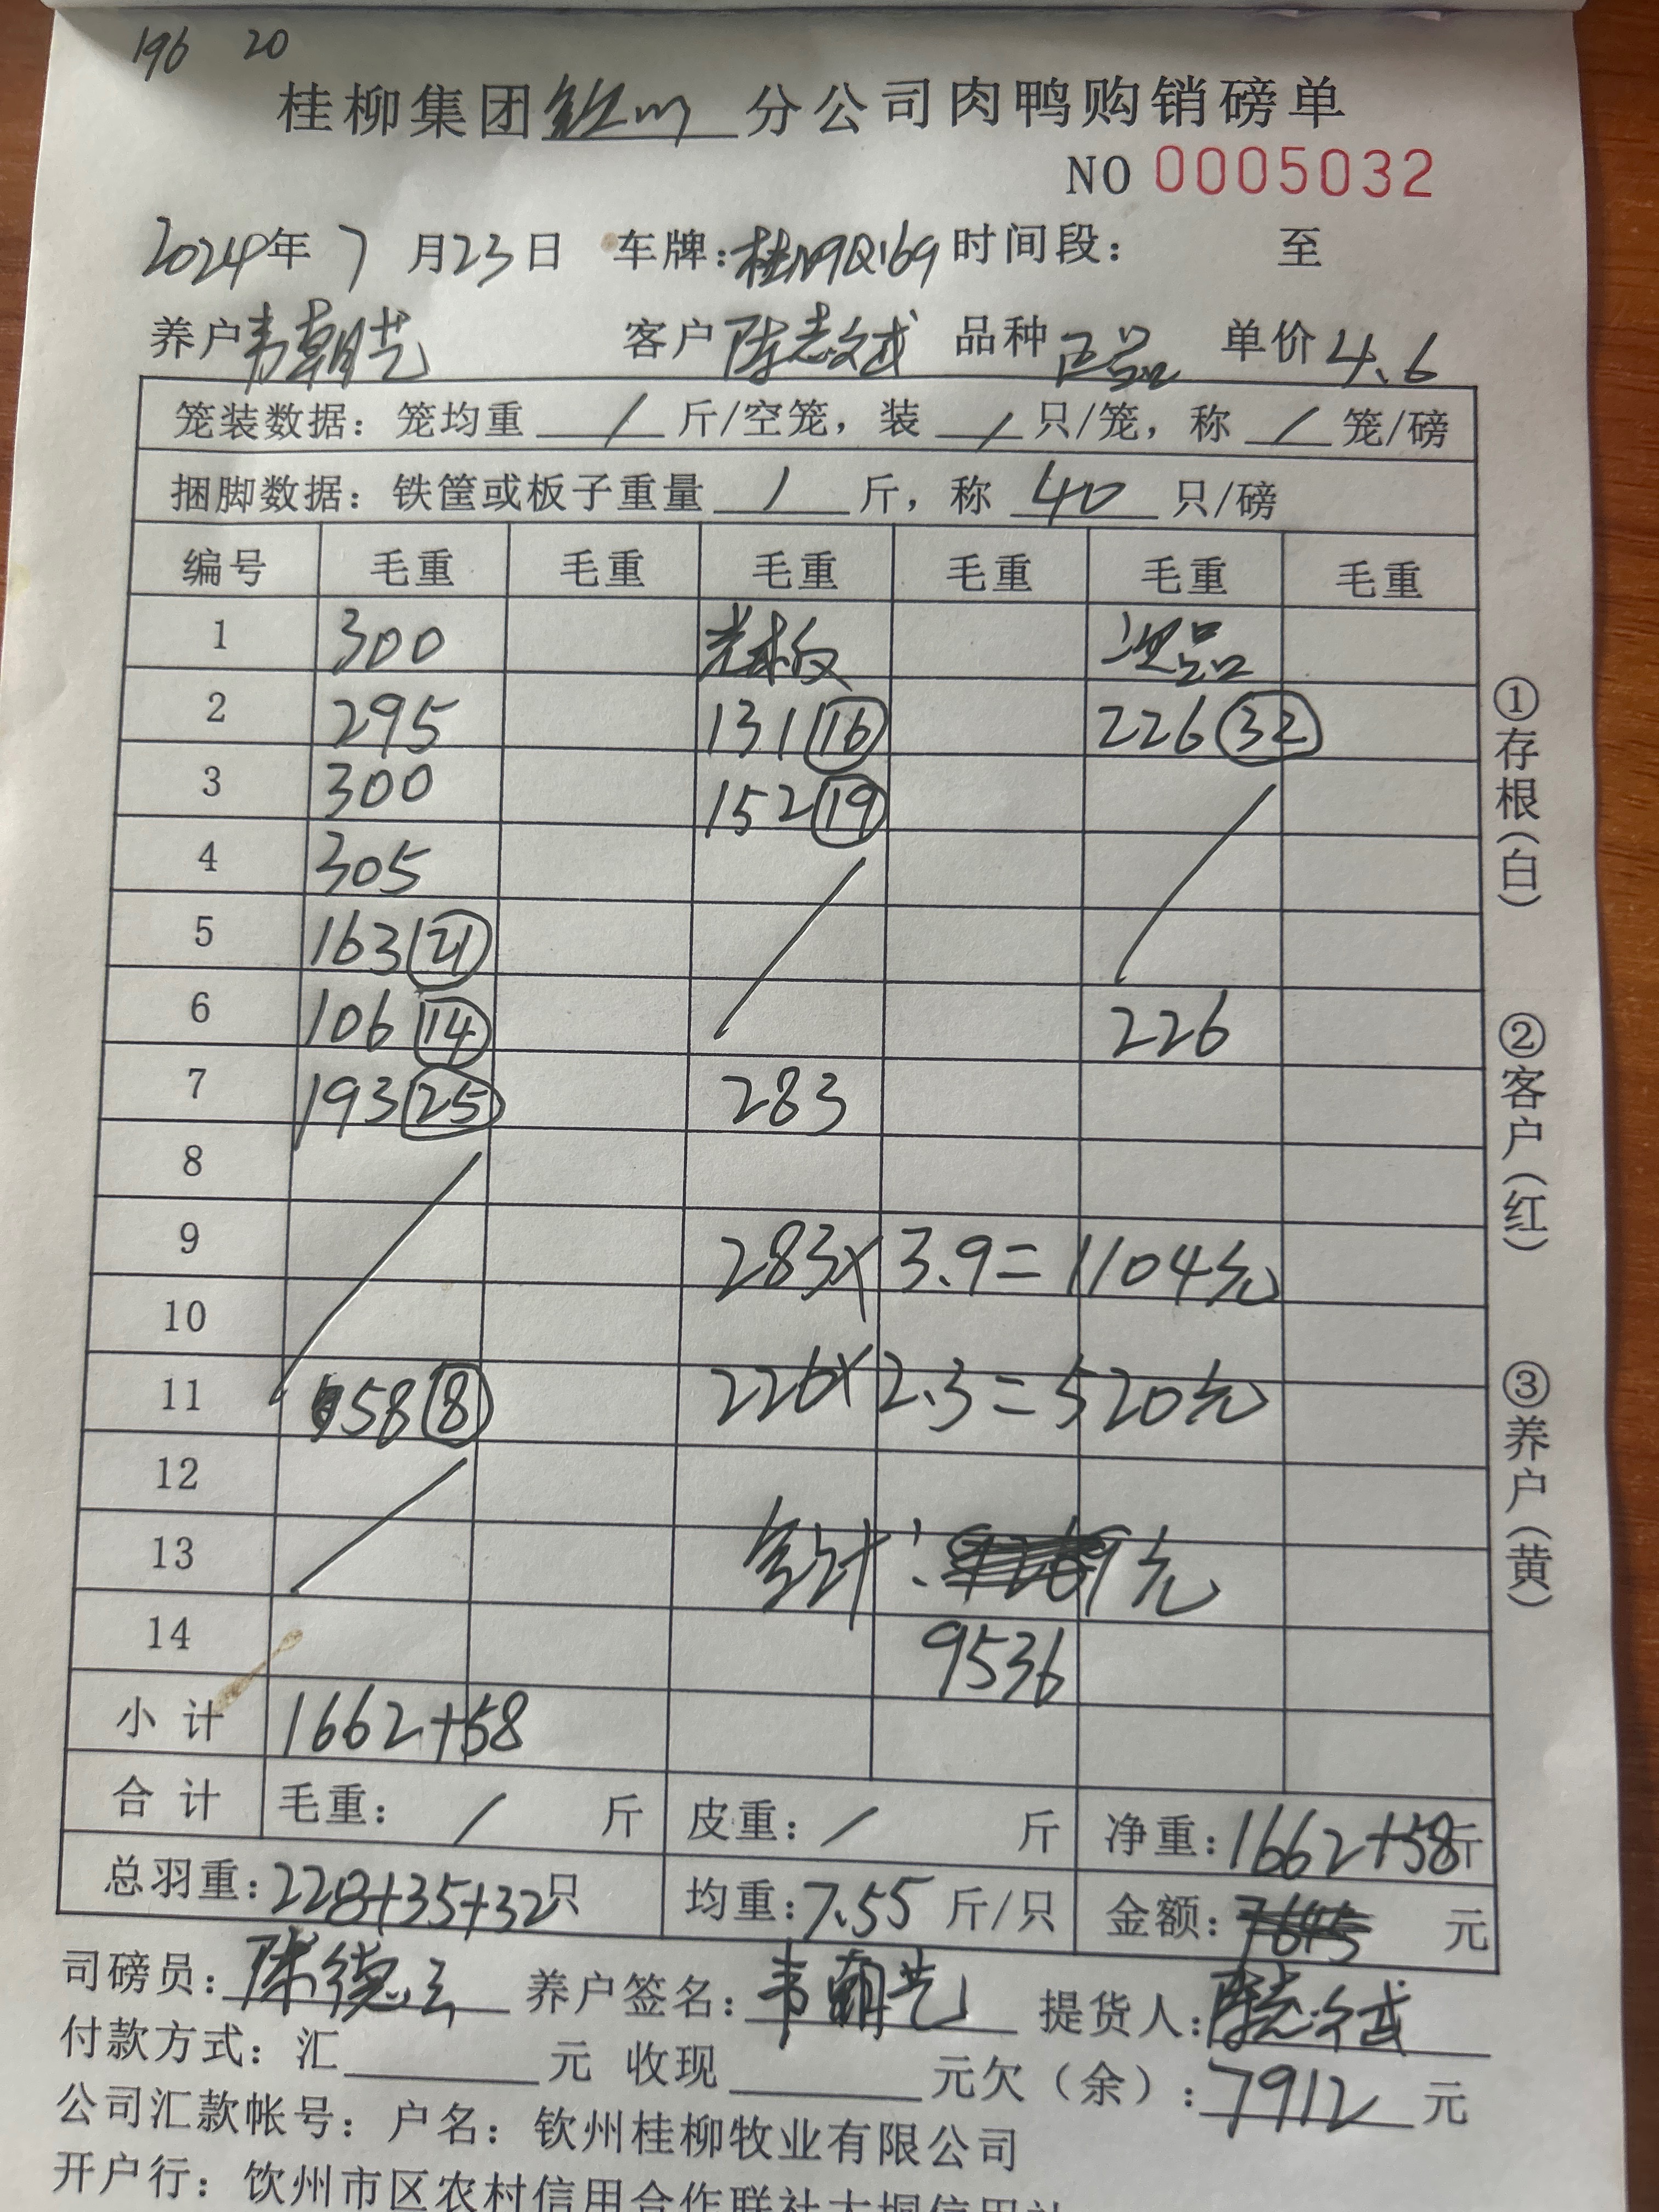 196 20
桂柳集团钦州分公司肉鸭购销磅单
NO 0005032
2024年7月23日 车牌: 时间段: 至
养户韦朝艺 客户陈志斌 品种正品 单价4.6
笼装数据:笼均重 / 斤/空笼,装 / 只/笼,称 / 笼/磅
捆脚数据:铁筐或板子重量 / 斤,称 40 只/磅
编号 毛重 毛重 毛重 毛重 毛重 毛重
1 300 光板 次品
2 295 131 16 226 32
3 300 152 19
4 305
5 163 21
6 106 14 226
7 193 25 283
8
9 283×3.9=1104元
10
11 58 8 226×2.3=520元
12
13 合计: 元
14 9536
小计 1662+58
合计 毛重: / 斤 皮重: / 斤 净重:1662+58斤
总羽重:228+35+32只 均重:7.55斤/只 金额:7645 元
司磅员:陈德 养户签名:韦朝艺 提货人:陈志斌
付款方式:汇 元 收现 元欠(余):7912元
公司汇款帐号:户名:钦州桂柳牧业有限公司
开户行:钦州市区农村信用合作联社大垌信用社
①存根(白)
②客户(红)
③养户(黄)